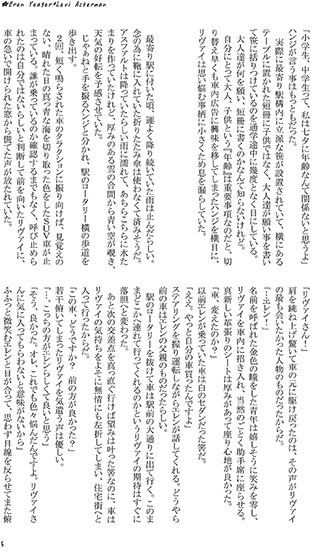 ★Eren Yeager＊Levi Ackerman
「小学生、中学生って、私は七夕に年齢なんて関係ないと思うよ」
ハンジが言う事はもっともだった。
実際に最寄り駅構内には大きい笹が設置されていて、横にある
テーブルに置かれた短冊に子供ではなく、大人達が願い事を書い
て笹に括りつけているのを通学途中で幾度となく目にしている。
大人達が何を願い、短冊に書くのかなんて知らないけれど。
自分にとって大人、子供という『年齢』は重要事項なのだと、切
り替え早くも車内広告に興味を移してしまったハンジを横目に、
リヴァイは思い悩む事柄に小さくため息を漏らしていた。
最寄り駅に付いた頃、運よく降り続いていた雨は止んだらしい。
念の為に鞄に入れていた折りたたみ傘は使わなくて済みそうだ。
アスファルトは降っていたらしい雨に濡れて、あちらこちらに水た
まりを作っていたけれど、厚みのある雲の合間から青い空が覗き、
天気の好転を予感させていた。
じゃあねと手を振るハンジと分かれ、駅のロータリー横の歩道を
歩き出す。
2回、短く鳴らされた車のクラクションに振り向けば、見覚えの
ない、晴れた日の真っ青な海を切り取った色をしたSUV車が止
まっている。誰が乗っているのか確認するまでもなく、呼び止めら
れたのは自分ではないらしいと判断して前を向いたリヴァイに、
車の急いで開けられた窓から慌てた声が放たれていた。
「リヴァイさん！」
肩を跳ね上げ驚いて車の元に駆け戻ったのは、その声がリヴァイ
の最も会いたかった人物のものだったからだ。
「……エレン」
名前を呼ばれた金色の瞳をした青年は嬉しそうに笑みを零し、
リヴァイを車内に招き入れ、当然のごとく助手席に座らせる。
真新しい革張りのシートは厚みがあって座り心地が良かった。
「車、変えたのか？」
以前エレンが乗っていた車は白のセダンだった筈だ。
「ええ、やっと自分の車買ったんですよ」
ステアリングを握り運転しながらエレンが話してくれる。どうやら
前の車はエレンの父親のものだったらしい。
駅のロータリーを抜けて車は駅前の大通りに出て行く。このま
まどこかへ連れて行ってくれるのかというリヴァイの期待はすぐに
落胆へと変わった。
あと二つ次の交差点を真っ直ぐ行けば望みは叶った筈なのに、車は
リヴァイの気持ちをよそに無情にも左折してしまい、住宅街へと
入って行ったからだ。
「この車、どうですか？　前の方が良かった？」
若干俯いてしまったリヴァイを気遣う声は優しい。
「……こっちの方がエレンらしくて良いと思う」
「そう、良かった。オレ、これでも色々悩んだんですよ。リヴァイさ
んに気に入ってもらわないと意味がないから」
ふふっと微笑むエレンと目が合って、思わず目線を反らせてまた俯
5